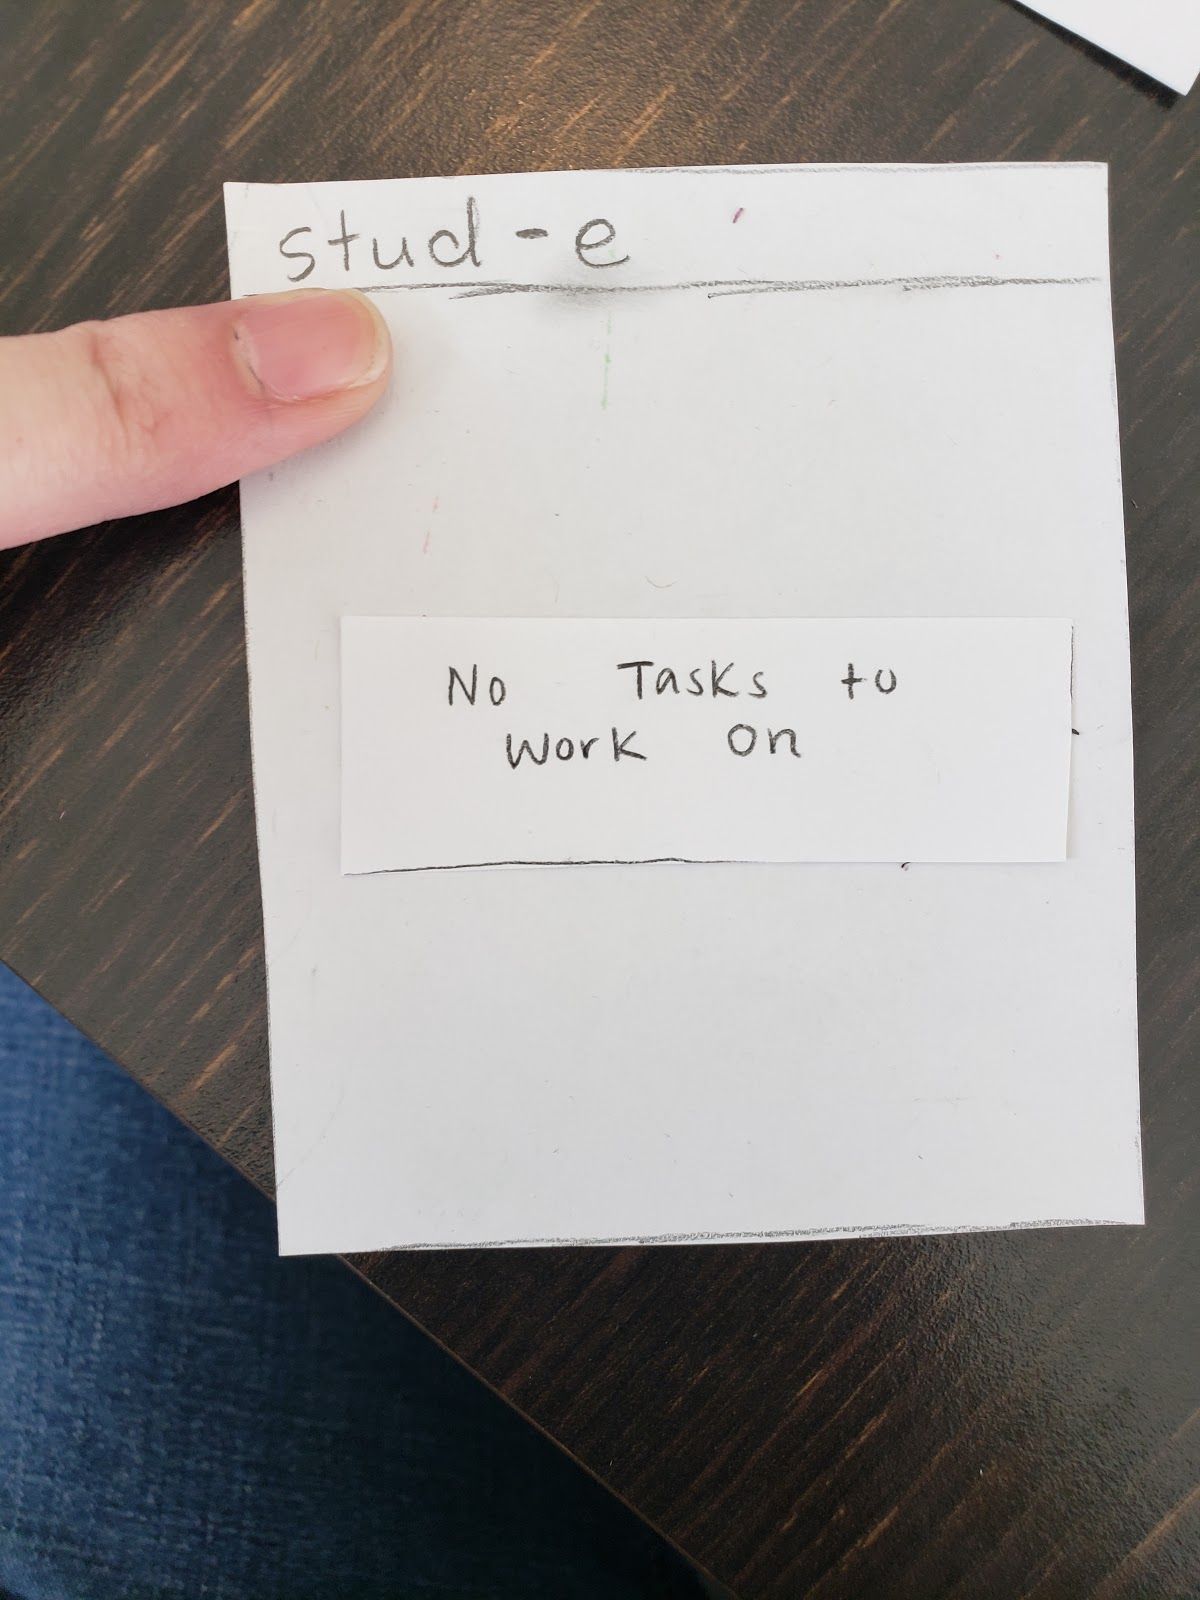 stud-e
No Tasks to
Work On